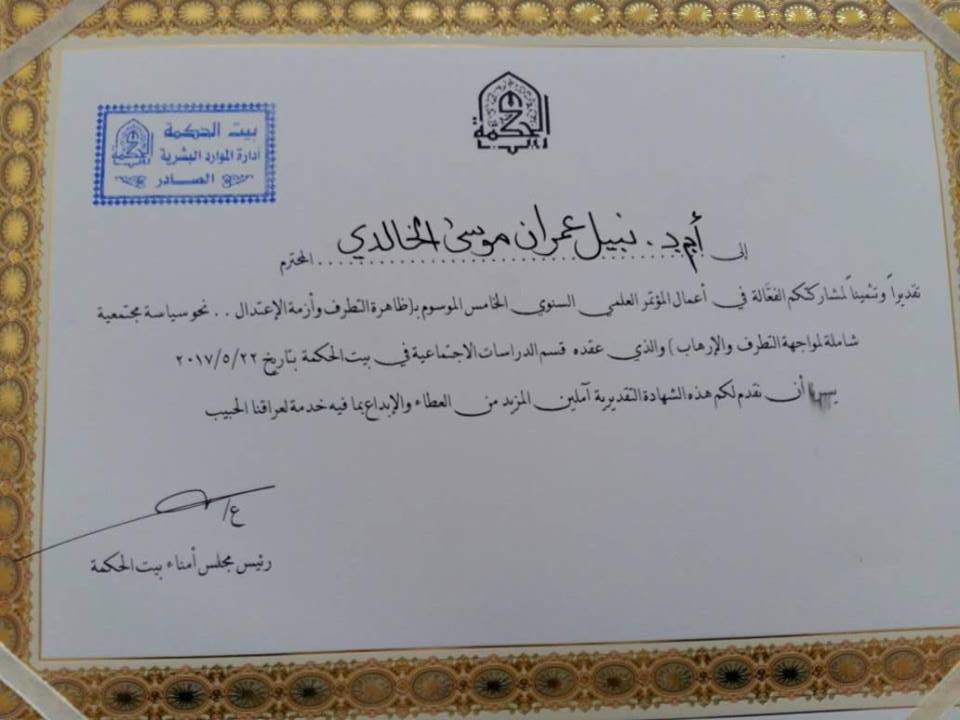 بيت الحكمة
بيت الحكمة
أدارة الموارد البشرية
الصادر
إلى أ.م.د. نبيل عمران موسى الخالدي المحترم
تقديراً وتثميناً لمشاركتكم الفعّالة في أعمال المؤتمر العلمي السنوي الخامس الموسوم بـ(ظاهرة التطرف وأزمة الإعتدال .. نحو سياسة مجتمعية
شاملة لمواجهة التطرف والإرهاب) والذي عقده قسم الدراسات الاجتماعية في بيت الحكمة بتاريخ ٢٠١٧/٥/٢٢
يسرنا أن نقدم لكم هذه الشهادة التقديرية آملين المزيد من العطاء والإبداع بما فيه خدمة لعراقنا الحبيب
ع/
رئيس مجلس أمناء بيت الحكمة